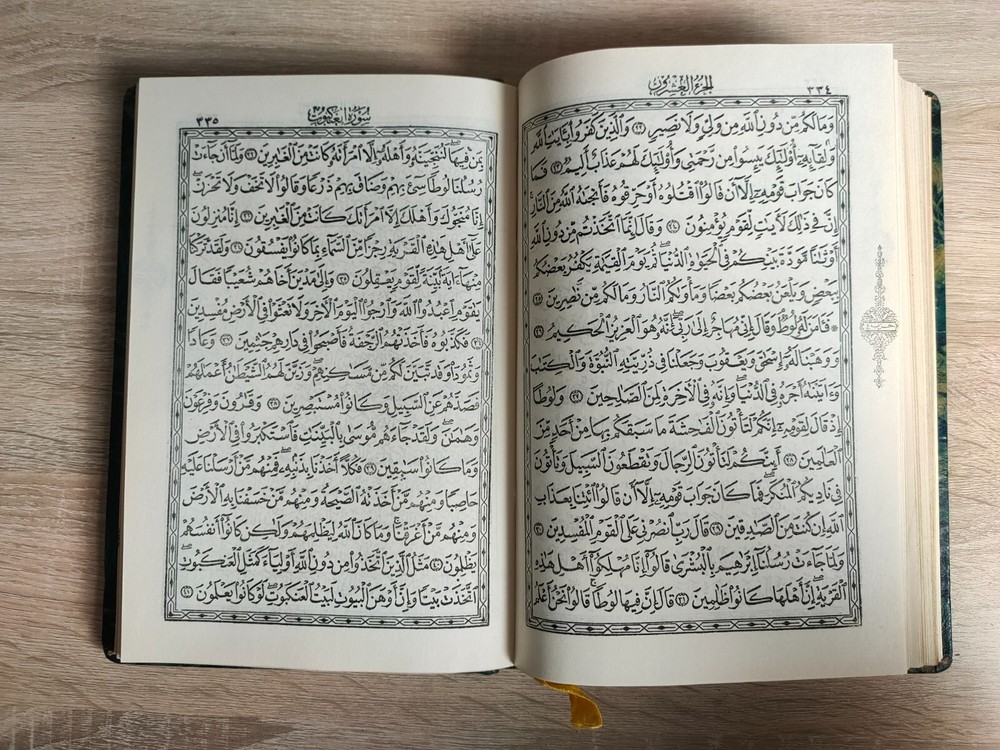 الجزء العشرون ٣٣٤
وَمَا لَكُم مِّن دُونِ ٱللَّهِ مِن وَلِيٍّ وَلَا نَصِيرٍ ٢٢ وَٱلَّذِينَ كَفَرُوا۟ بِـَٔايَٰتِ ٱللَّهِ
وَلِقَآئِهِۦٓ أُو۟لَٰٓئِكَ يَئِسُوا۟ مِن رَّحْمَتِى وَأُو۟لَٰٓئِكَ لَهُمْ عَذَابٌ أَلِيمٌ ٢٣ فَمَا
كَانَ جَوَابَ قَوْمِهِۦٓ إِلَّآ أَن قَالُوا۟ ٱقْتُلُوهُ أَوْ حَرِّقُوهُ فَأَنجَىٰهُ ٱللَّهُ مِنَ ٱلنَّارِ
إِنَّ فِى ذَٰلِكَ لَـَٔايَٰتٍ لِّقَوْمٍ يُؤْمِنُونَ ٢٤ وَقَالَ إِنَّمَا ٱتَّخَذْتُم مِّن دُونِ ٱللَّهِ
أَوْثَٰنًا مَّوَدَّةَ بَيْنِكُمْ فِى ٱلْحَيَوٰةِ ٱلدُّنْيَا ثُمَّ يَوْمَ ٱلْقِيَٰمَةِ يَكْفُرُ بَعْضُكُم
بِبَعْضٍ وَيَلْعَنُ بَعْضُكُم بَعْضًا وَمَأْوَىٰكُمُ ٱلنَّارُ وَمَا لَكُم مِّن نَّٰصِرِينَ ٢٥
۞ فَـَٔامَنَ لَهُۥ لُوطٌ وَقَالَ إِنِّى مُهَاجِرٌ إِلَىٰ رَبِّىٓ إِنَّهُۥ هُوَ ٱلْعَزِيزُ ٱلْحَكِيمُ ٢٦
وَوَهَبْنَا لَهُۥٓ إِسْحَٰقَ وَيَعْقُوبَ وَجَعَلْنَا فِى ذُرِّيَّتِهِ ٱلنُّبُوَّةَ وَٱلْكِتَٰبَ
وَءَاتَيْنَٰهُ أَجْرَهُۥ فِى ٱلدُّنْيَا وَإِنَّهُۥ فِى ٱلْـَٔاخِرَةِ لَمِنَ ٱلصَّٰلِحِينَ ٢٧ وَلُوطًا
إِذْ قَالَ لِقَوْمِهِۦٓ إِنَّكُمْ لَتَأْتُونَ ٱلْفَٰحِشَةَ مَا سَبَقَكُم بِهَا مِنْ أَحَدٍ مِّنَ
ٱلْعَٰلَمِينَ ٢٨ أَئِنَّكُمْ لَتَأْتُونَ ٱلرِّجَالَ وَتَقْطَعُونَ ٱلسَّبِيلَ وَتَأْتُونَ
فِى نَادِيكُمُ ٱلْمُنكَرَ فَمَا كَانَ جَوَابَ قَوْمِهِۦٓ إِلَّآ أَن قَالُوا۟ ٱئْتِنَا بِعَذَابِ
ٱللَّهِ إِن كُنتَ مِنَ ٱلصَّٰدِقِينَ ٢٩ قَالَ رَبِّ ٱنصُرْنِى عَلَى ٱلْقَوْمِ ٱلْمُفْسِدِينَ ٣٠
وَلَمَّا جَآءَتْ رُسُلُنَآ إِبْرَٰهِيمَ بِٱلْبُشْرَىٰ قَالُوٓا۟ إِنَّا مُهْلِكُوٓا۟ أَهْلِ هَٰذِهِ
ٱلْقَرْيَةِ إِنَّ أَهْلَهَا كَانُوا۟ ظَٰلِمِينَ ٣١ قَالَ إِنَّ فِيهَا لُوطًا قَالُوا۟ نَحْنُ أَعْلَمُ
سورة العنكبوت ٣٣٥
بِمَن فِيهَا لَنُنَجِّيَنَّهُۥ وَأَهْلَهُۥٓ إِلَّا ٱمْرَأَتَهُۥ كَانَتْ مِنَ ٱلْغَٰبِرِينَ ٣٢ وَلَمَّآ أَن جَآءَتْ
رُسُلُنَا لُوطًا سِىٓءَ بِهِمْ وَضَاقَ بِهِمْ ذَرْعًا وَقَالُوا۟ لَا تَخَفْ وَلَا تَحْزَنْ
إِنَّا مُنَجُّوكَ وَأَهْلَكَ إِلَّا ٱمْرَأَتَكَ كَانَتْ مِنَ ٱلْغَٰبِرِينَ ٣٣ إِنَّا مُنزِلُونَ
عَلَىٰٓ أَهْلِ هَٰذِهِ ٱلْقَرْيَةِ رِجْزًا مِّنَ ٱلسَّمَآءِ بِمَا كَانُوا۟ يَفْسُقُونَ ٣٤ وَلَقَد تَّرَكْنَا
مِنْهَآ ءَايَةًۢ بَيِّنَةً لِّقَوْمٍ يَعْقِلُونَ ٣٥ وَإِلَىٰ مَدْيَنَ أَخَاهُمْ شُعَيْبًا فَقَالَ
يَٰقَوْمِ ٱعْبُدُوا۟ ٱللَّهَ وَٱرْجُوا۟ ٱلْيَوْمَ ٱلْـَٔاخِرَ وَلَا تَعْثَوْا۟ فِى ٱلْأَرْضِ مُفْسِدِينَ
٣٦ فَكَذَّبُوهُ فَأَخَذَتْهُمُ ٱلرَّجْفَةُ فَأَصْبَحُوا۟ فِى دَارِهِمْ جَٰثِمِينَ ٣٧ وَعَادًا
وَثَمُودَا۟ وَقَد تَّبَيَّنَ لَكُم مِّن مَّسَٰكِنِهِمْ وَزَيَّنَ لَهُمُ ٱلشَّيْطَٰنُ أَعْمَٰلَهُمْ
فَصَدَّهُمْ عَنِ ٱلسَّبِيلِ وَكَانُوا۟ مُسْتَبْصِرِينَ ٣٨ وَقَٰرُونَ وَفِرْعَوْنَ
وَهَٰمَٰنَ وَلَقَدْ جَآءَهُم مُّوسَىٰ بِٱلْبَيِّنَٰتِ فَٱسْتَكْبَرُوا۟ فِى ٱلْأَرْضِ
وَمَا كَانُوا۟ سَٰبِقِينَ ٣٩ فَكُلًّا أَخَذْنَا بِذَنۢبِهِۦ فَمِنْهُم مَّنْ أَرْسَلْنَا عَلَيْهِ
حَاصِبًا وَمِنْهُم مَّنْ أَخَذَتْهُ ٱلصَّيْحَةُ وَمِنْهُم مَّنْ خَسَفْنَا بِهِ ٱلْأَرْضَ
وَمِنْهُم مَّنْ أَغْرَقْنَا وَمَا كَانَ ٱللَّهُ لِيَظْلِمَهُمْ وَلَٰكِن كَانُوٓا۟ أَنفُسَهُمْ
يَظْلِمُونَ ٤٠ مَثَلُ ٱلَّذِينَ ٱتَّخَذُوا۟ مِن دُونِ ٱللَّهِ أَوْلِيَآءَ كَمَثَلِ ٱلْعَنكَبُوتِ
ٱتَّخَذَتْ بَيْتًا وَإِنَّ أَوْهَنَ ٱلْبُيُوتِ لَبَيْتُ ٱلْعَنكَبُوتِ لَوْ كَانُوا۟ يَعْلَمُونَ ٤١